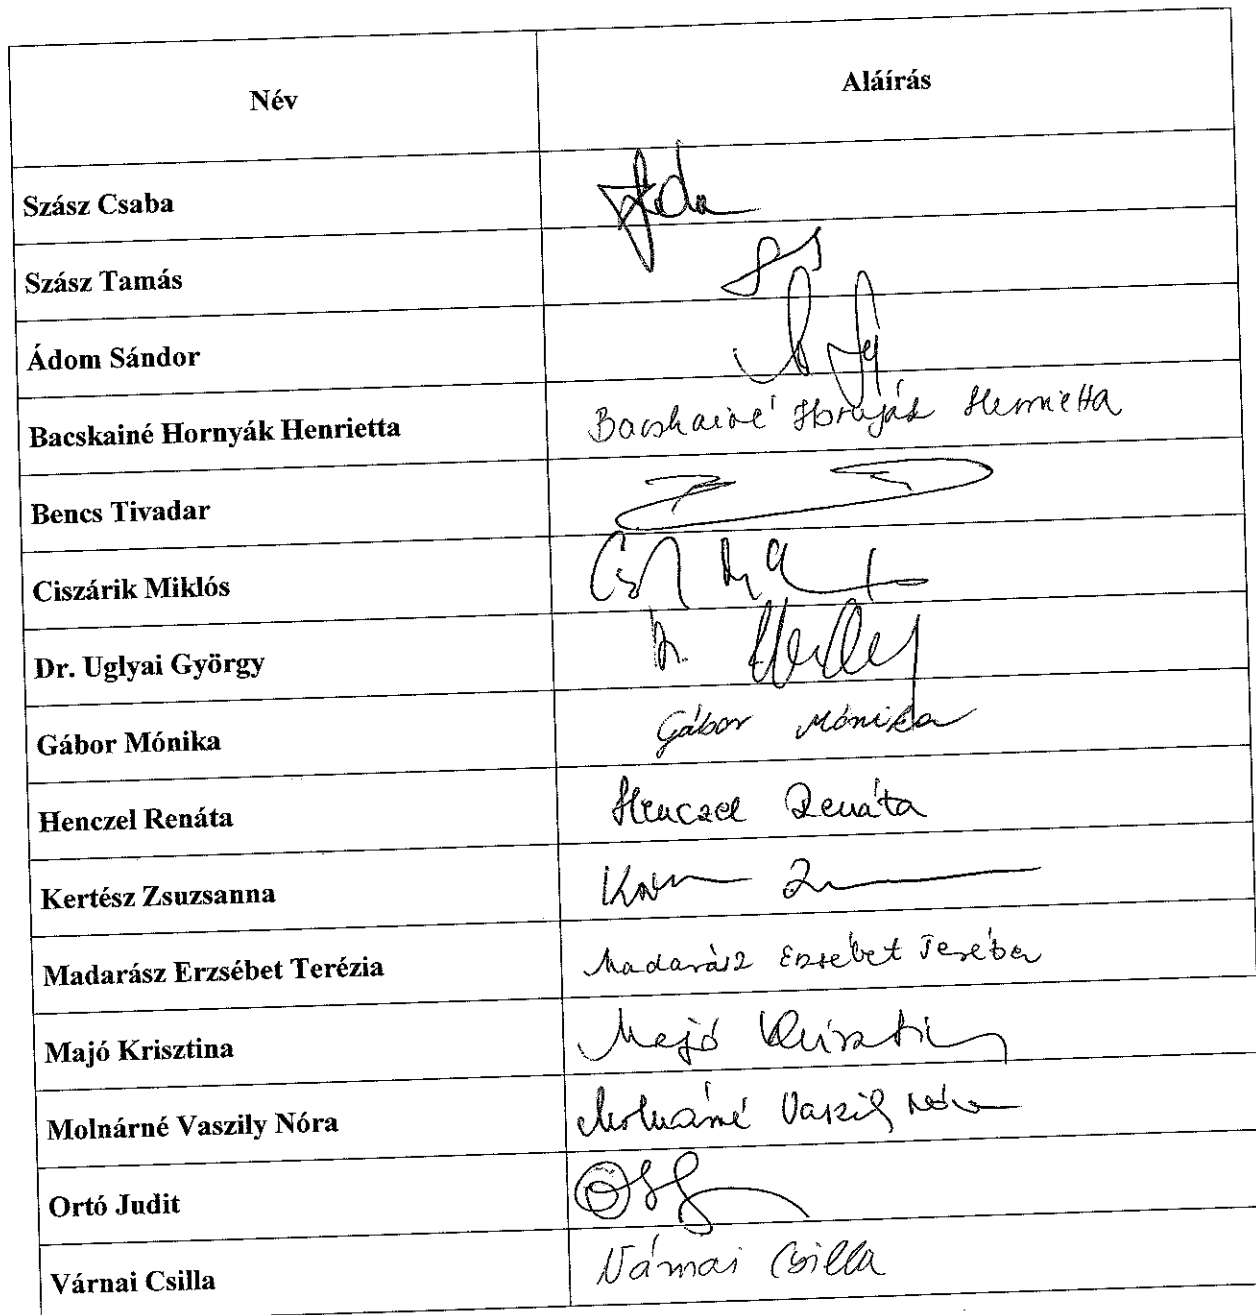 Név Aláírás
Szász Csaba
Szász Tamás
Ádom Sándor
Bacskainé Hornyák Henrietta Bacskainé Hornyák Henrietta
Bencs Tivadar
Ciszárik Miklós
Dr. Uglyai György Dr.
Gábor Mónika Gábor Mónika
Henczel Renáta Henczel Renáta
Kertész Zsuzsanna
Madarász Erzsébet Terézia Madarász Erzsébet Terézia
Majó Krisztina Majó Krisztin
Molnárné Vaszily Nóra Molnárné Vaszily Nóra
Ortó Judit
Várnai Csilla Várnai Csilla